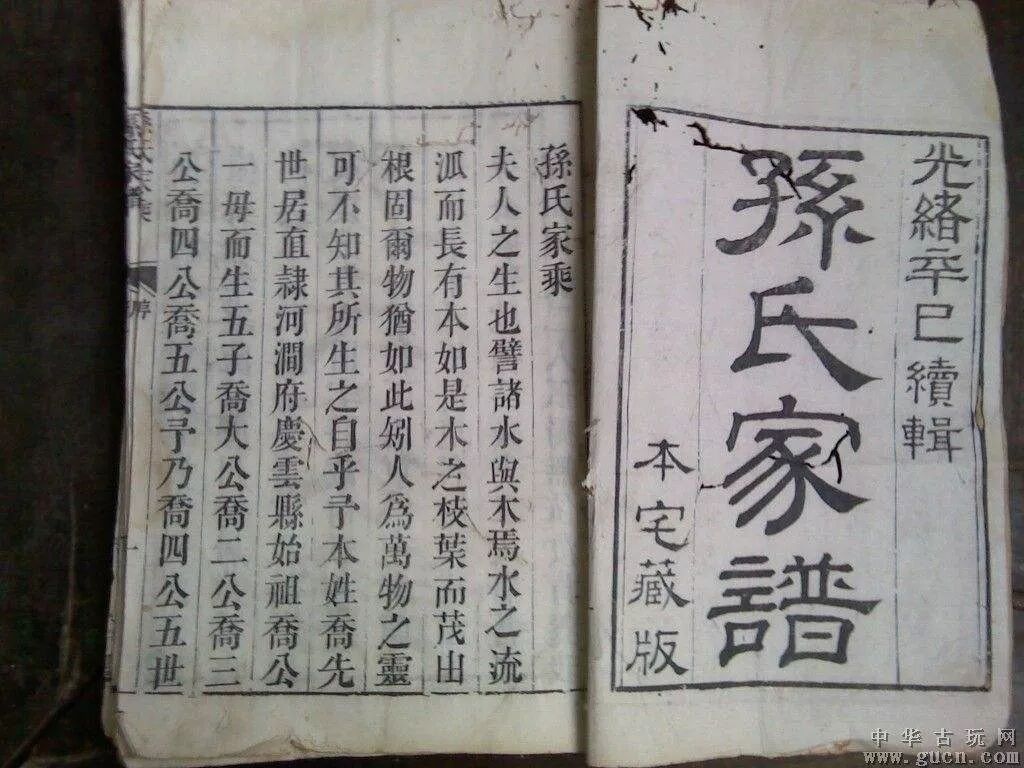 光緒辛巳續輯
孫氏家譜
本宅藏版
孫氏家乘
夫人之生也譬諸水與木焉水之流
派而長有本如是木之枝葉而茂出
根固爾物猶如此矧人為萬物之靈
可不知其所生之自乎予本姓喬先
世居直隷河澗府慶雲縣始祖喬公
一母而生五子喬大公喬二公喬三
公喬四公喬五公予乃喬四公五世
序
一
中华古玩网
www.gucn.com